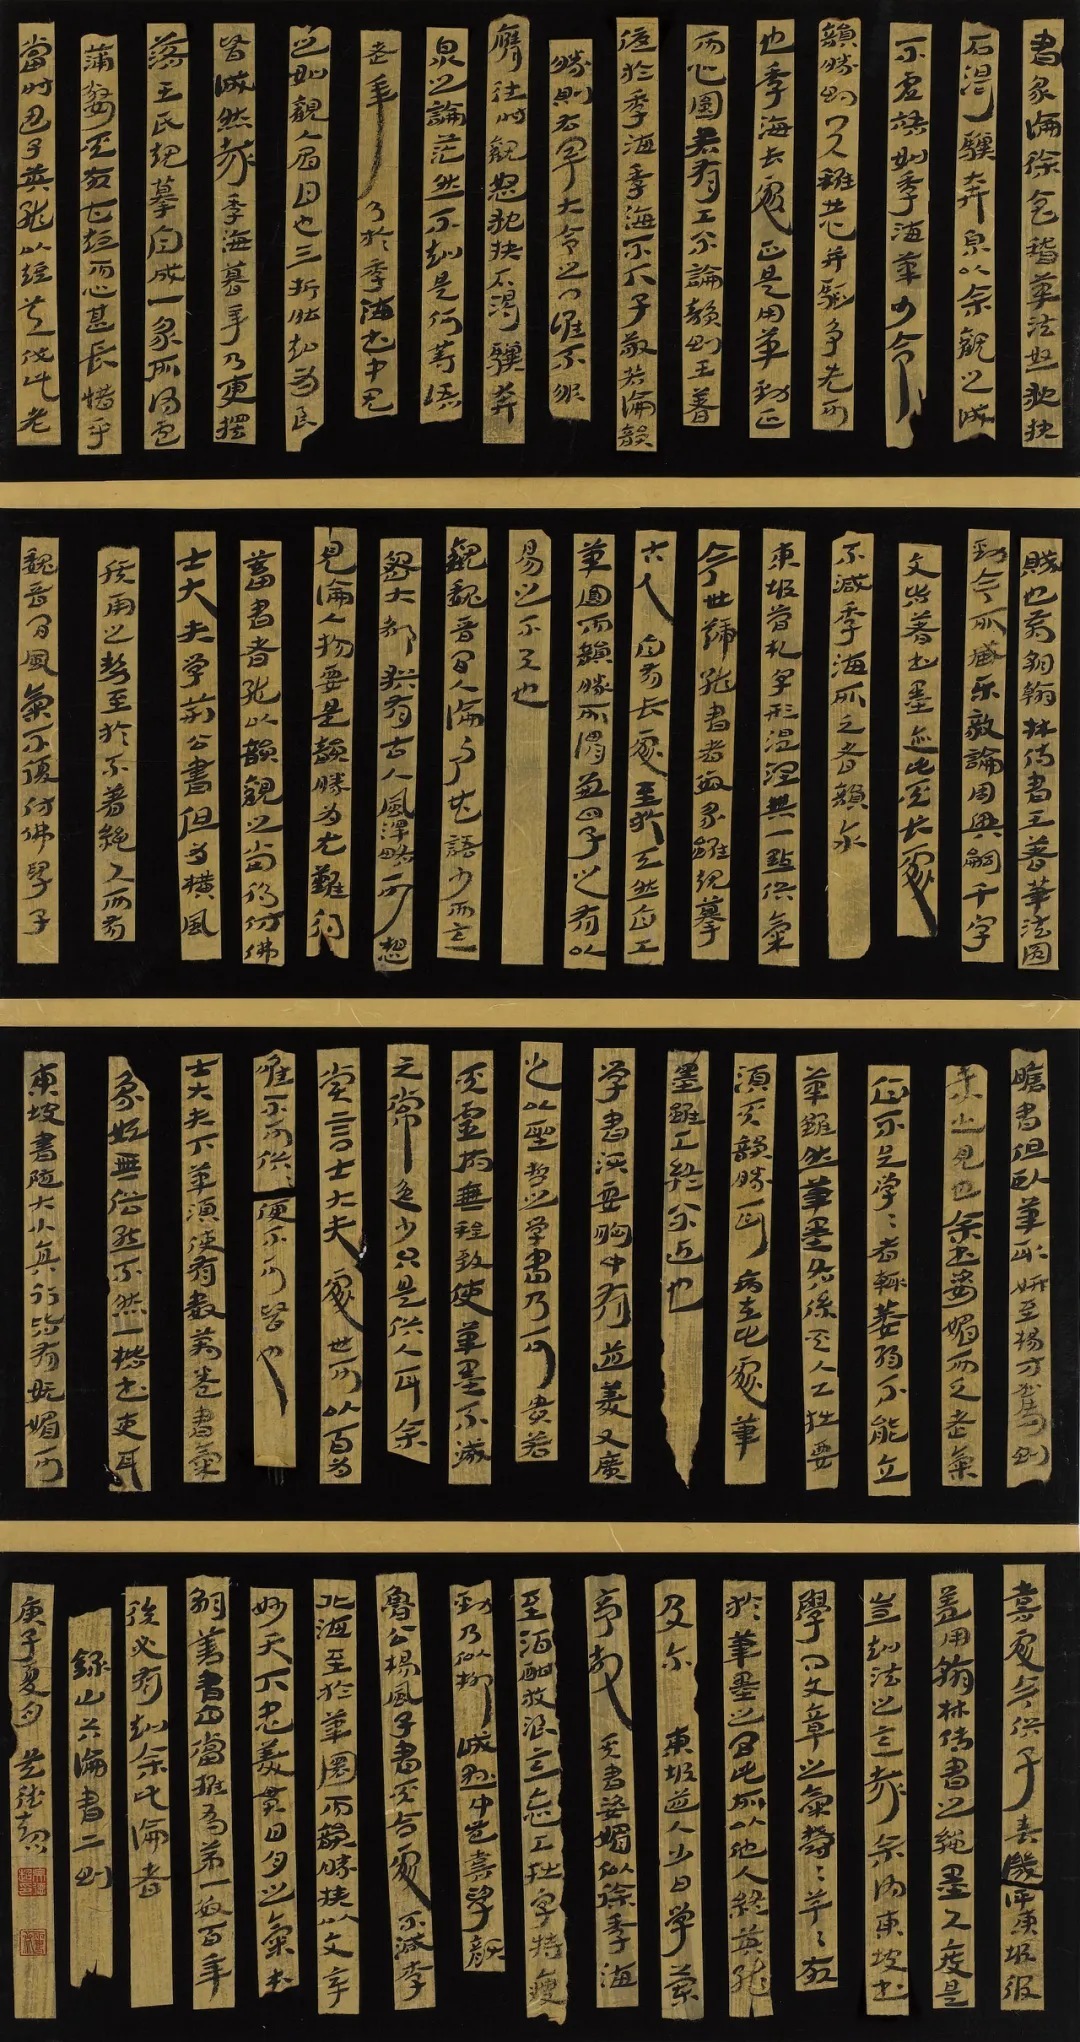 書家論徐會稽筆法怒猊抉
石渴驥奔泉以余觀之誠
不虛語如季海筆少令
韻勝則與稚恭並驅爭先可
也季海長處正是用筆勁正
而心圓若有工不論韻則王著
優於季海季海不下子敬若論韻
勝則右軍大令之門誰不服
膺往時觀怒猊抉石渴驥奔
泉之論茫然不知是何等語
老年乃於季海書中見
之如觀人眉目也三折肱知為良
醫誠然哉季海暮年乃更擺
落王氏規摹自成一家所謂盧
蒲嫳其髮甚短而心甚長惜乎
當時君子莫能以短兵伐此老
賊也前朝翰林侍書王著筆法圓
勁今所藏樂毅論周興嗣千字
文皆著書墨跡此其長處
不減季海所乏者韻爾
東坡簡札字形溫潤無一點俗氣
今世號能書者數家雖規摹
古人自有長處至於天然自工
筆圓而韻勝所謂兼四子之有以
易之不與也
觀魏晉間人論事皆語少而意
密大都猶有古人風澤略可想
見論人物要是韻勝為尤難得
蓄書者能以韻觀之當得仿佛
士大夫學荊公書但為橫風
疾雨之勢至於不著繩尺而有
魏晉間風氣不復仿佛學子
瞻書但臥筆取妍至楊方駕則
未之見也余書姿媚而乏老氣
自不足學學者輒萎弱不能立
筆雖然筆墨各係其人工拙要
須其韻勝耳病在此處筆
墨雖工終不近也
學書須要胸中有道義又廣
之以聖哲之學書乃可貴若
其靈府無程致使筆墨不減
元常逸少只是俗人耳余
嘗言士大夫處世可以百為
唯不可俗俗便不可醫也
士大夫下筆須使有數萬卷書氣
象始無俗態不然一楷書吏耳
東坡書隨大小真行皆有嫵媚可
喜處今俗子喜譏評東坡彼
蓋用翰林侍書之繩墨尺度是
豈知法之意哉余謂東坡書
學問文章之氣鬱鬱芊芊發
於筆墨之間此所以他人終莫能
及爾東坡道人少日學蘭
亭故其書姿媚似徐季海
至酒酣放浪意忘工拙字特瘦
勁乃似柳誠懸中歲喜學顏
魯公楊風子書其合處不減李
北海至於筆圓而韻勝挾以文章
妙天下忠義貫日月之氣本
朝善書自當推為第一數百年
後必有知余此論者
錄山谷論書二則
庚子夏月